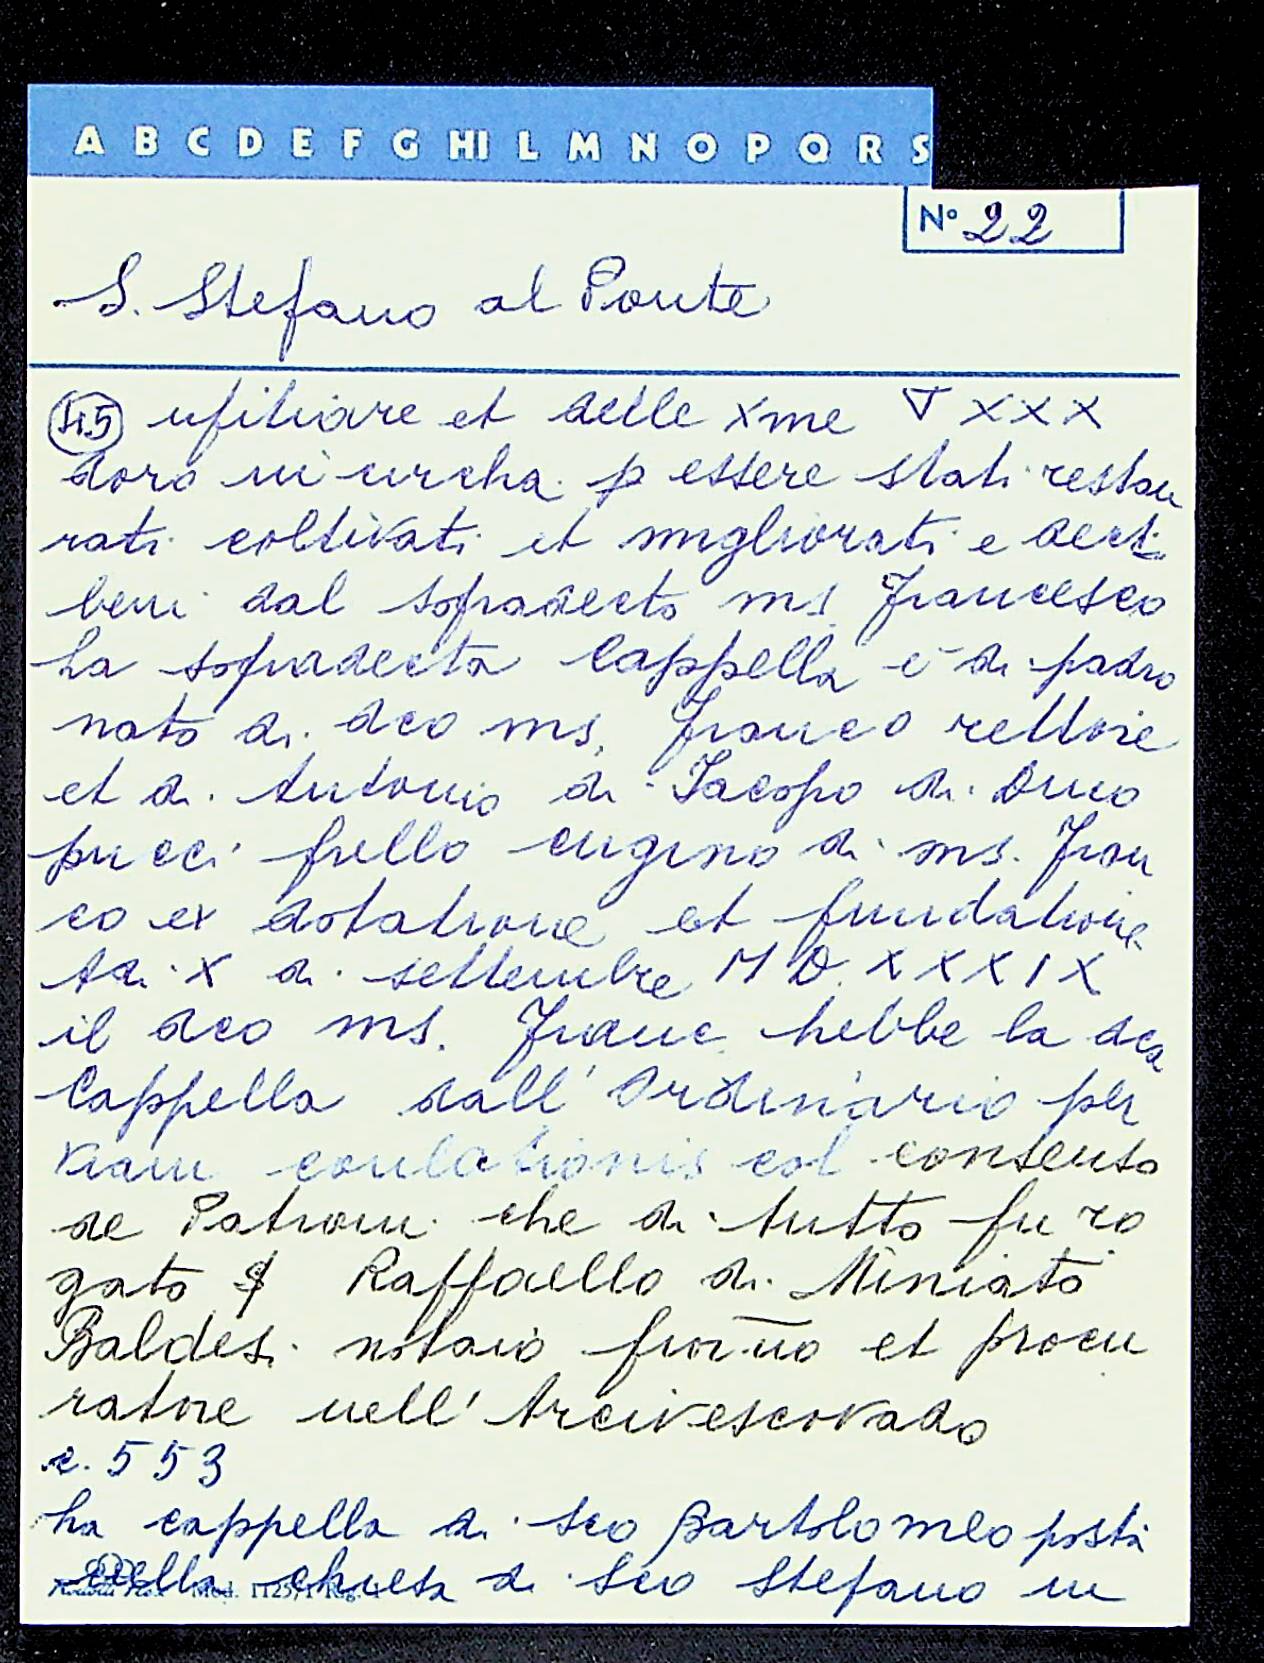 A B C D E F G HI L M N O P Q R S
N° 22
S. Stefano al Ponte
45 ufitiare et delle Xme ∇ XXX
doro in circha p essere stati restau
rati coltivati et migliorati e decti
beni dal sopradecto ms Francesco
La sopradecta Cappella e di padro
nato di dco ms. Franco rettore
et di Antonio di Jacopo di Dino
pucci frello cugino di ms. Fran
co ex dotatione et fundatione
Adi X di settembre MD.XXXIX
il dco ms. Franc. hebbe la dca
Cappella dall' Ordinario per
viam conlationis col consenso
de Patroni che di tutto fu ro
gato Raffaello di Miniato
Baldesi notaio fior.no et procu
ratore nell' Arcivescovado
c. 553
La cappella di Sco Bartolomeo posta
nella chiesa di Sco Stefano in
Mod. 1125/1